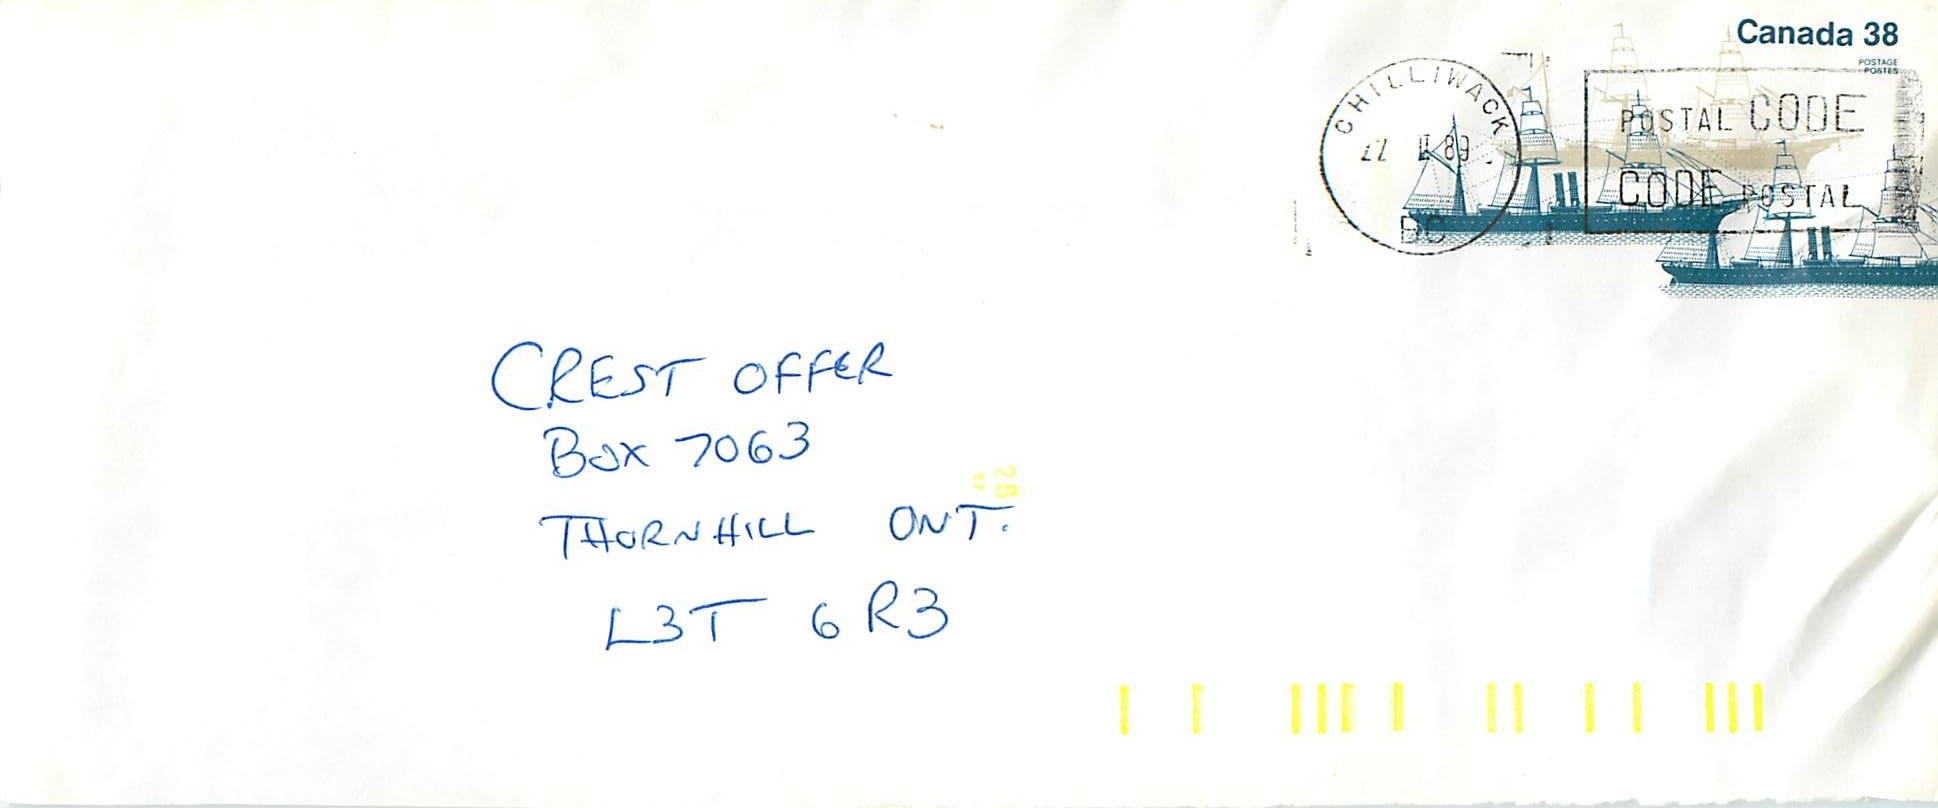 Canada 38
POSTAGE
POSTES
CHILLIWACK
22 II 89
BC
POSTAL CODE
CODE POSTAL
CREST OFFER
BOX 7063
28
THORNHILL ONT.
L3T 6R3